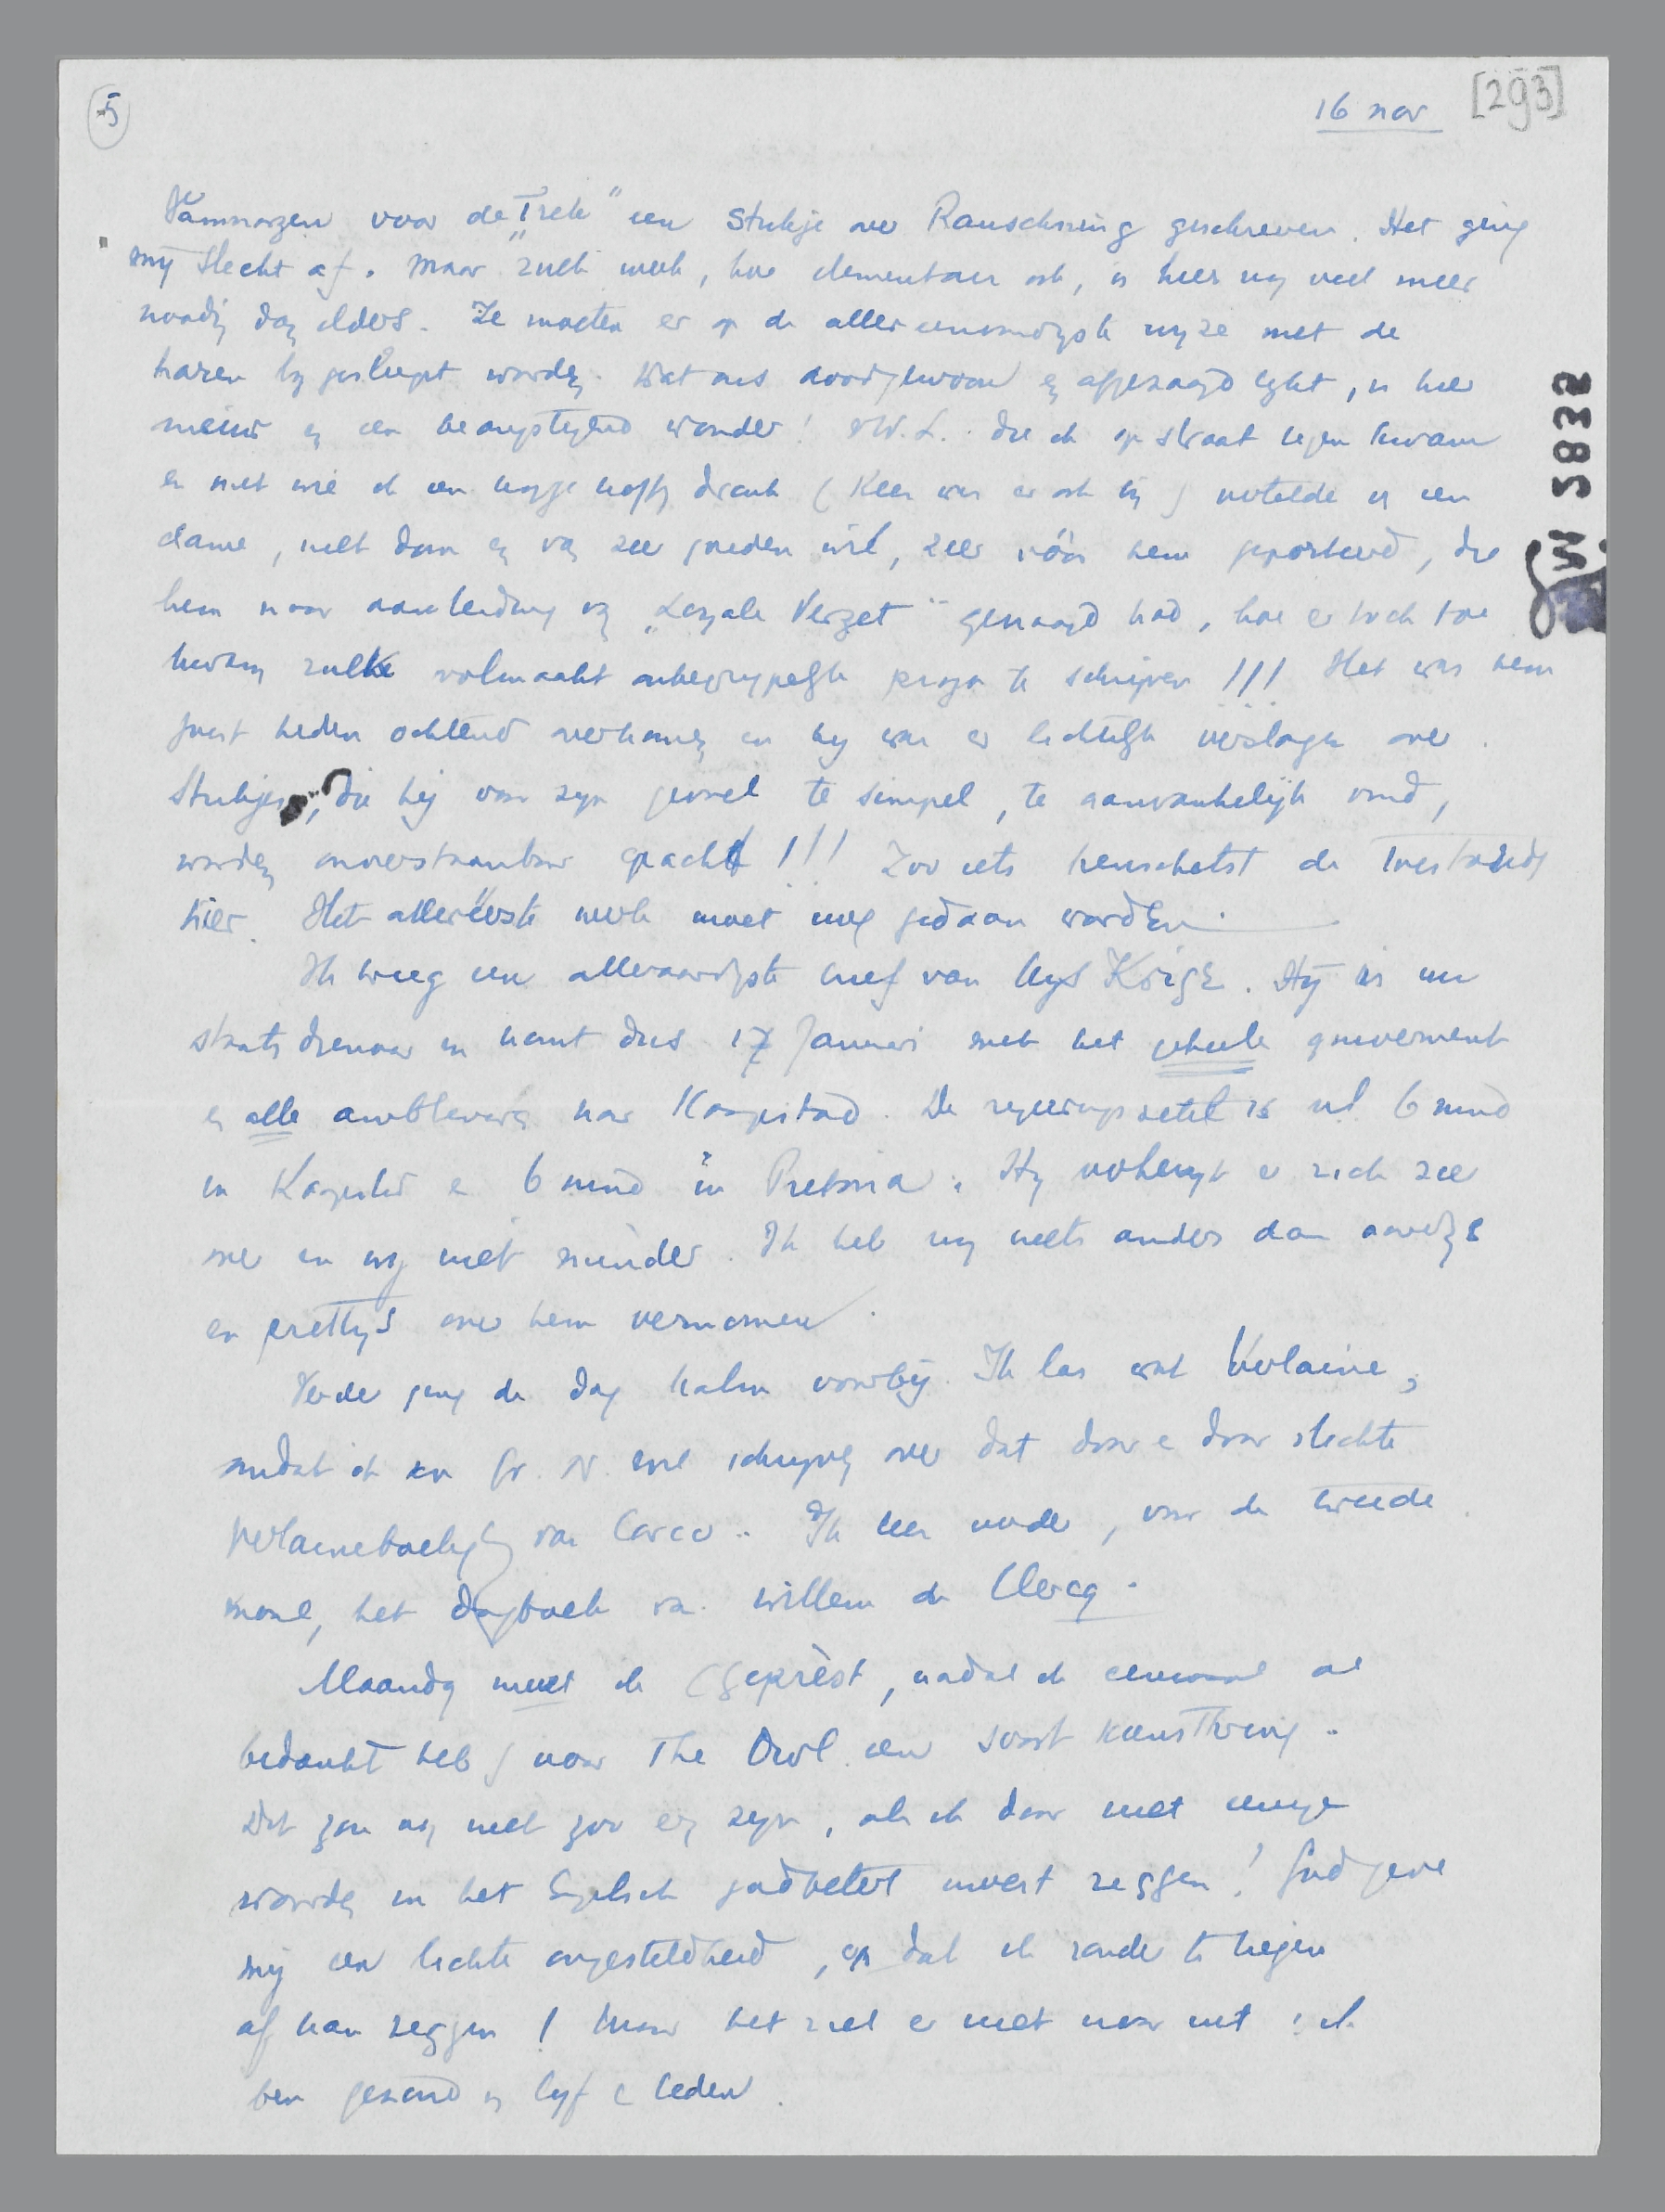 5
16 nov [293]
Vanmorgen voor de „Trek" een stukje over Rauschning geschreven. Het ging
mij slecht af. Maar zulk werk, hoe elementair ook, is hier nog veel meer
noodig dan elders. Ze moeten er op de allereenvoudigste wijze met de
haren bijgesleept worden. Wat ons doodgewoon en afgezaagd lijkt, is hier
nieuw en een beangstigend wonder! v.W.L. die ik op straat tegen kwam
en met wie ik een kopje koffij dronk (Kees was er ook bij) vertelde v een
dame, niet dom en van zeer goeden wil, zeer vóór hem geporteerd, die
hem naar aanleiding van „Loyale Verzet" gevraagd had, hoe er toch toe
kwam zulke volmaakt onbegrijpelijke proza te schrijven!!! Het was hem
juist heden ochtend overkomen en hij was er lichtelijk verslagen over.
Stukjes, die hij voor zijn gevoel te simpel, te aanvankelijk vond,
worden onverstaanbaar geacht!!! Zoo iets kenschetst de toestand
hier. Het allereerste werk moet nog gedaan worden.
Ik kreeg een alleraardigste brief van Uys Krige. Hij is nu
staatsdienaar en komt dus 17 Januari met het geheele gouvernement
en alle ambtenaren naar Kaapstad. De regeeringszetel is nl 6 mnd
in Kaapstad en 6 mnd in Pretoria. Hij verheugt er zich zeer
over en wij niet minder. Ik heb nog niets anders dan aardigs
en prettigs over hem vernomen.
Verder ging de dag kalm voorbij. Ik las wat Verlaine,
omdat ik in Gr. N. wil schrijven over dat door en door slechte
Verlaineboekje van Carco. Ik lees verder, voor de tweede
maal, het dagboek van Willem de Clercq.
Maandag moet ik (geprèst, nadat ik eenmaal al
bedankt heb) naar The Owl een soort kunstkring.
Dit zou nog niet zoo erg zijn, als ik daar niet eenige
woorden in het Engelsch godbetert moest zeggen! God geve
mij een lichte ongesteldheid, op dat ik zonder te liegen
af kan zeggen! Maar het ziet er niet naar uit: ik
ben gezond v lijf en leden.
W 5832